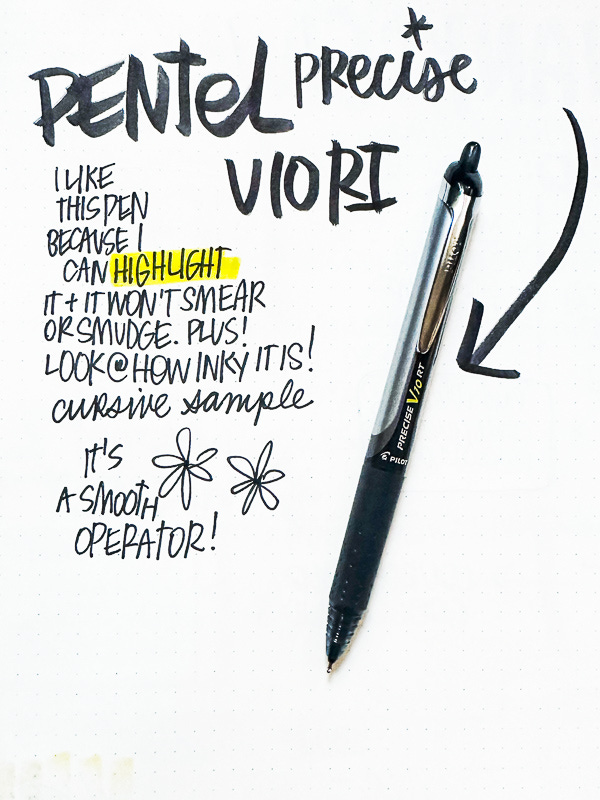 PENTEL PRECISE
V10 RT
I LIKE
THIS PEN
BECAUSE I
CAN HIGHLIGHT
IT + IT WON'T SMEAR
OR SMUDGE. PLUS!
LOOK @ HOW INKY IT IS!
cursive sample
IT'S
A SMOOTH
OPERATOR!
PILOT
PRECISE V10 RT
PILOT